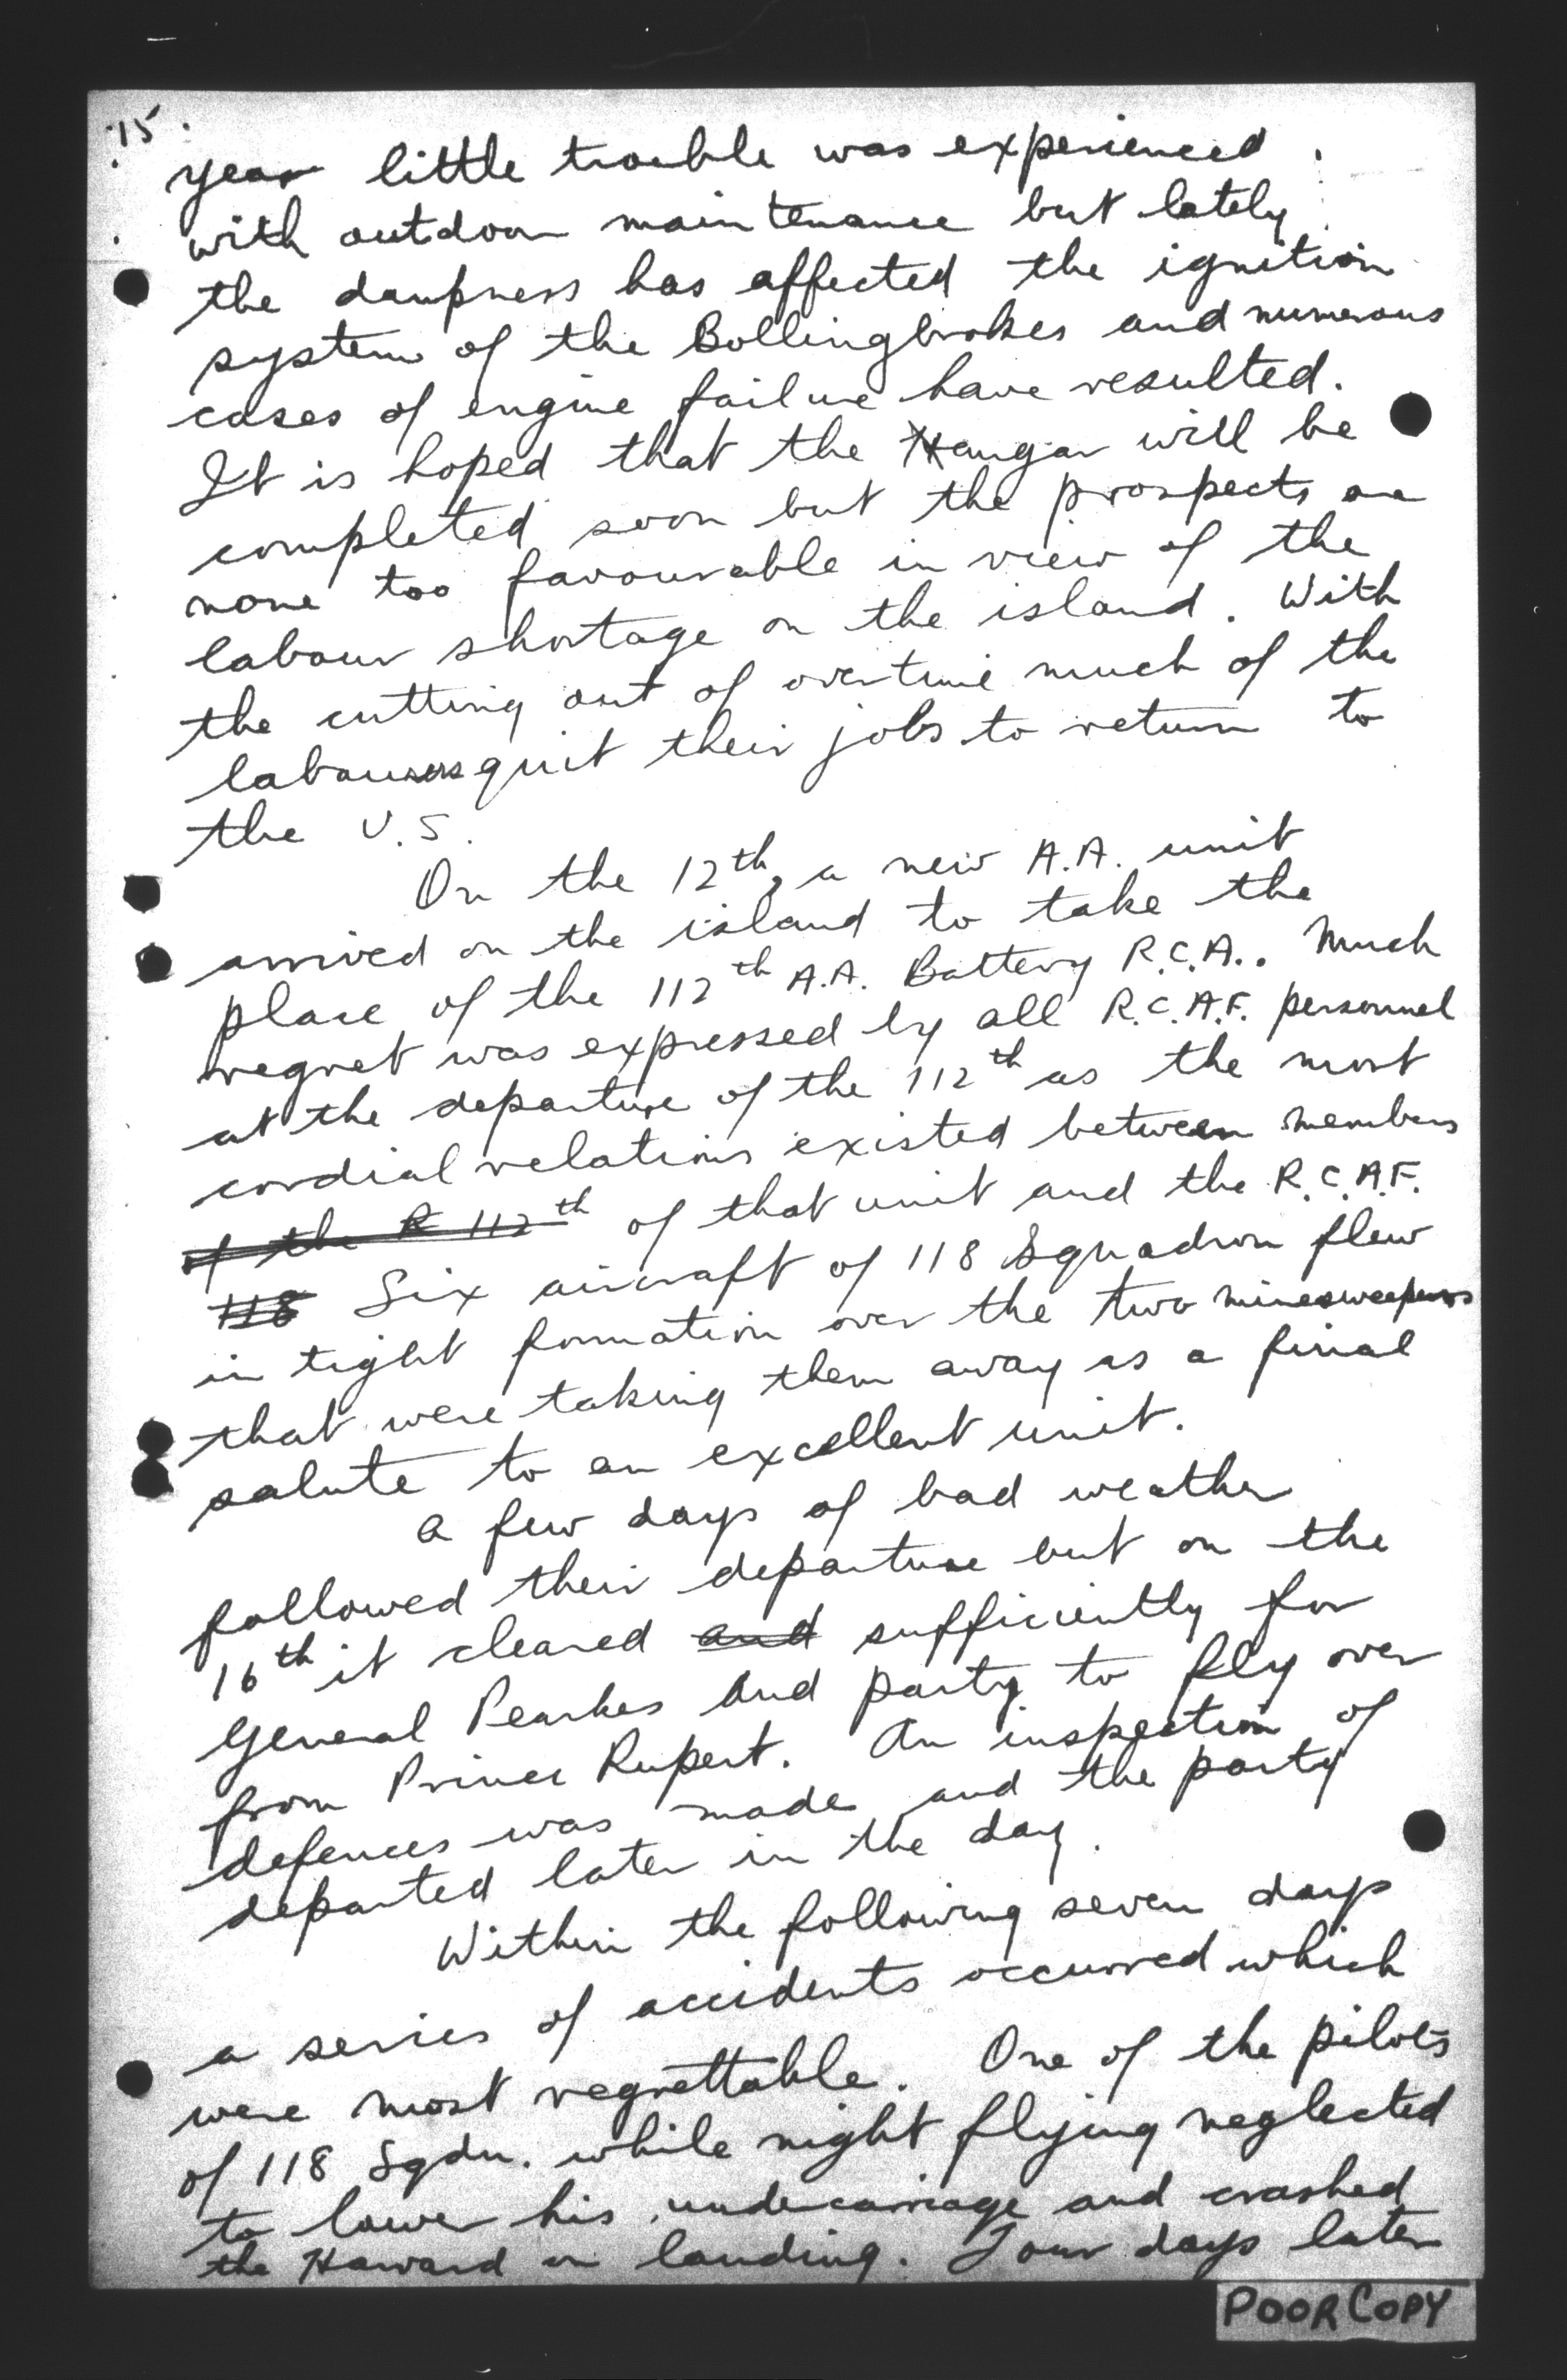 15
year little trouble was experienced
with outdoor maintenance but lately
the dampness has affected the ignition
system of the Bollingbrokes and numerous
cases of engine failure have resulted.
It is hoped that the Hangar will be
completed soon but the prospects are
none too favourable in view of the
labour shortage on the island. With
the cutting out of overtime much of the
labourers quit their jobs to return to
the U.S.
On the 12th, a new A.A. unit
arrived on the island to take the
place of the 112th A.A. Battery R.C.A.. Much
regret was expressed by all R.C.A.F. personnel
at the departure of the 112th as the most
cordial relations existed between members
of the R 112th of that unit and the R.C.A.F.
118 Six aircraft of 118 Squadron flew
in tight formation over the two minesweepers
that were taking them away as a final
salute to an excellent unit.
A few days of bad weather
followed their departure but on the
16th it cleared and sufficiently for
General Pearkes and party to fly over
from Prince Rupert. An inspection of
defences was made and the party
departed later in the day.
Within the following seven days
a series of accidents occurred which
were most regrettable. One of the pilots
of 118 Sqdn. while night flying neglected
to lower his undercarriage and crashed
the Harvard on landing. Four days later
POOR COPY